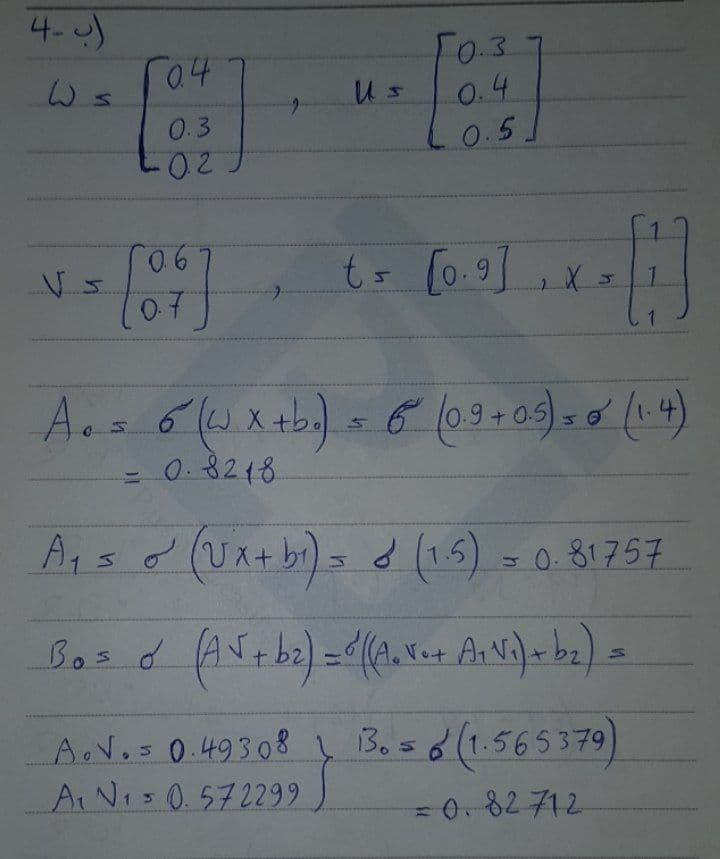 4-ب)
W = [0.4 0.3 0.2] , U = [0.3 0.4 0.5]
V = [0.6 0.7] , t = [0.9] , X = [1 1 1]
A₀ = σ(W X + b₀) = σ(0.9 + 0.5) = σ(1.4)
= 0.8218
A₁ = σ(Ux + b1) = σ(1.5) = 0.81757
B₀ = σ(AV + b2) = σ((A₀V₀ + A₁V₁) + b₂) =
A₀V₀ = 0.49308 } B₀ = σ(1.565379)
A₁V₁ = 0.572299
= 0.82712